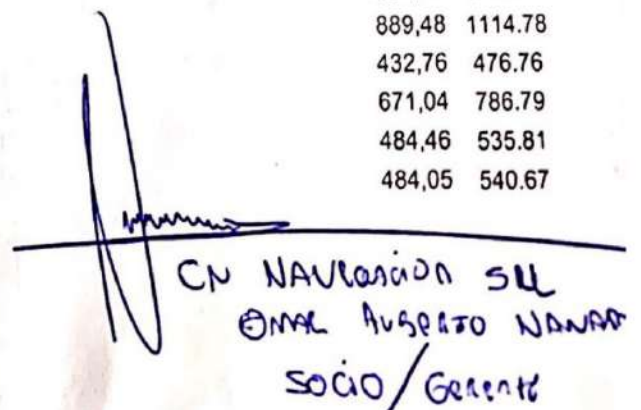 889,48 1114.78
432,76 476.76
671,04 786.79
484,46 535.81
484,05 540.67
CN NAVEGACIÓN SRL
OMAR
SOCIO / Gerente